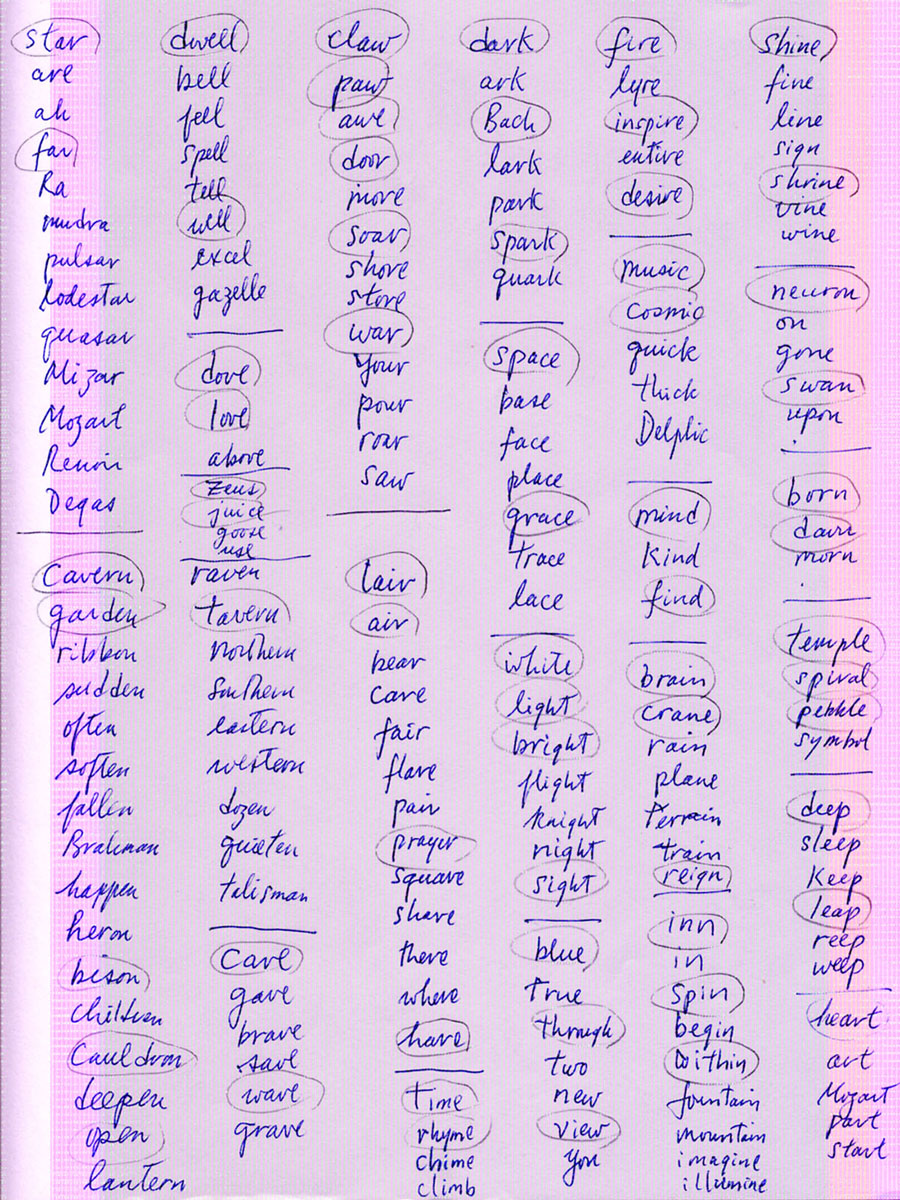 star
are
ah
far
Ra
mudra
pulsar
lodestar
quasar
Mizar
Mozart
Renoir
Degas
Cavern
garden
ribbon
sudden
often
soften
fallen
Brahman
happen
heron
bison
children
Cauldron
deepen
open
lantern
dwell
bell
fell
spell
tell
well
excel
gazelle
dove
love
above
Zeus
juice
goose
use
raven
tavern
Northern
Southern
eastern
western
dozen
quieten
talisman
Cave
gave
brave
save
wave
grave
claw
paw
awe
door
more
soar
shore
store
war
your
pour
roar
saw
lair
air
bear
care
fair
flare
pair
prayer
square
share
there
where
hare
time
rhyme
chime
climb
dark
ark
Bach
lark
park
spark
quark
space
base
face
place
grace
trace
lace
white
light
bright
flight
knight
night
sight
blue
true
through
two
new
view
you
fire
lyre
inspire
entire
desire
music
cosmic
quick
thick
Delphic
mind
kind
find
brain
crane
rain
plane
terrain
train
reign
inn
in
spin
begin
within
fountain
mountain
imagine
illumine
shine
fine
line
sign
shrine
vine
wine
neuron
on
gone
swan
upon
born
dawn
morn
temple
spiral
pebble
symbol
deep
sleep
keep
leap
reep
weep
heart
art
Mozart
part
start